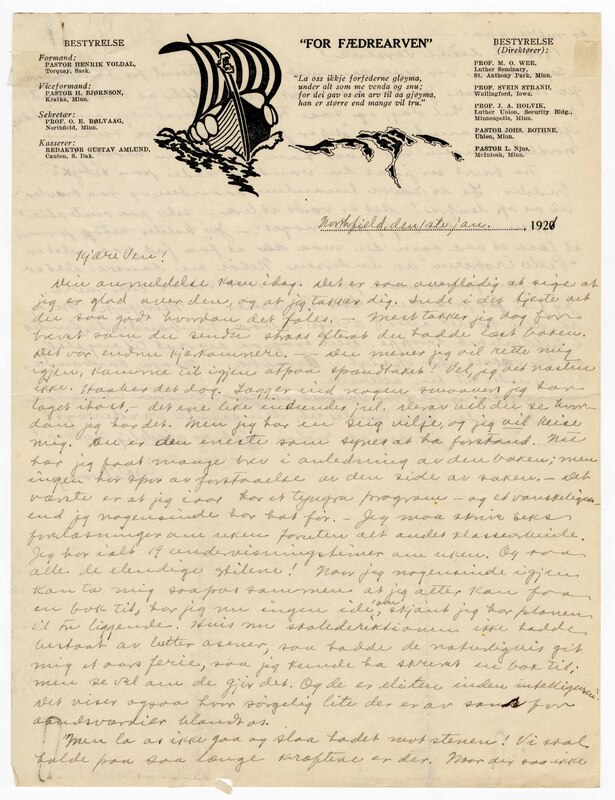 BESTYRELSE
Formand:
PASTOR HENRIK VOLDAL,
Torquay, Sask.
Viceformand:
PASTOR H. BJØRNSON,
Kratka, Minn.
Sekretær:
PROF. O. E. RØLVAAG,
Northfield, Minn.
Kasserer:
REDAKTØR GUSTAV AMLUND,
Canton, S. Dak.
"FOR FÆDREARVEN"
"La oss ikkje forfederne gløyma,
under alt som me venda og snu;
for dei gav os ein arv til aa gjøyma,
han er større end mange vil tru."
BESTYRELSE
(Direktører):
PROF. M. O. WEE,
Luther Seminary,
St. Anthony Park, Minn.
PROF. SVEIN STRAND,
Wallingford, Iowa.
PROF. J. A. HOLVIK,
Luther Union, Security Bldg.,
Minneapolis, Minn.
PASTOR JOHS. ROTHNE,
Uhlen, Minn.
PASTOR L. Njus,
McIntosh, Minn.
Northfield, den 1ste jan. 1921
Kjære Ven!
Din anmeldelse kom idag. Det er saa overflødig at sige at
jeg er glad over den, og at jeg takker dig. Inde i dit hjerte vet
du saa godt hvordan det føles. – Mest takker jeg dog for
brevet som du sendte straks efterat du hadde læst boken.
Det var endnu kjærkomnere. – Du mener jeg vil rette mig
igjen, komme til igjen ut paa spændtaket? Vel, jeg vet næsten
ikke. Haaber det dog. Lægger ind nogen snaaver jeg har
taget ihøst, – det ene like indunder jul. Derav vil du se hvor-
dan jeg har det. Men jeg har en seig vilje, og jeg vil reise
mig. Du er den eneste som synes at ha forstaad. Nu
har jeg faat mange brev i anledning av den boken; men
ingen har spor av forstaaelse av den side av saken. – Det
værste er at jeg iaar har et tyngre program – og et vanskeligere –
end jeg nogensinde har hat før. – Jeg maa skrive seks
forelæsninger om uken foruten alt andet klassearbeide.
Jeg har ialt 19 undervisningstimer om uken. Og saa
alle de elendige stilene! Naar jeg nogensinde igjen
kan ta mig saapas sammen at jeg atter kan faa
en bok til, har jeg nu ingen ide om, skjønt jeg har planen
til tre liggende. Hvis nu skoledirektionen ikke hadde
bestaat av lutter asener, saa hadde de naturligvis git
mig et aars ferie, saa jeg kunde ha skrevet en bok til;
men se vel om de gjør det. Og de er eliten inden intelligensen!
Det viser ogsaa hvor sørgelig lite der er av sans for
aandsværdier blandt os.
Men la os ikke gaa og slaa hodet mot stenen! Vi skal
holde paa saa længe kræftene er der. Naar der saa ikke